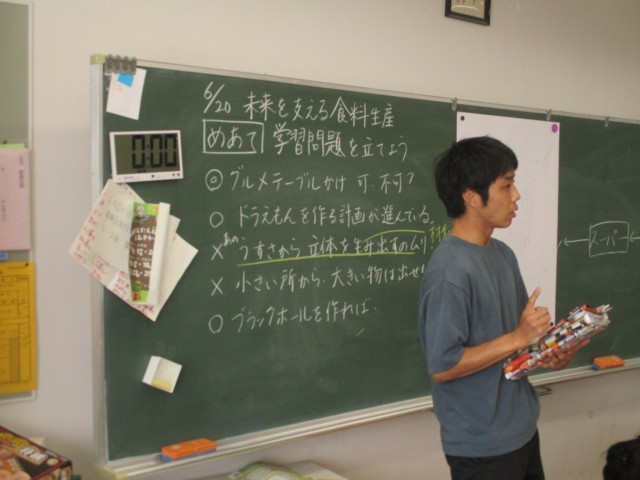 6/20 未来を支える食料生産
めあて 学習問題を立てよう
◎ グルメテーブルかけ 可・不可?
○ ドラえもんを作る計画が進んでいる。
× あのうすさから 立体を生み出すのムリ
× 小さい所から、大きい物は出せ
○ ブラックホールを作れば・
0:00
スーパー